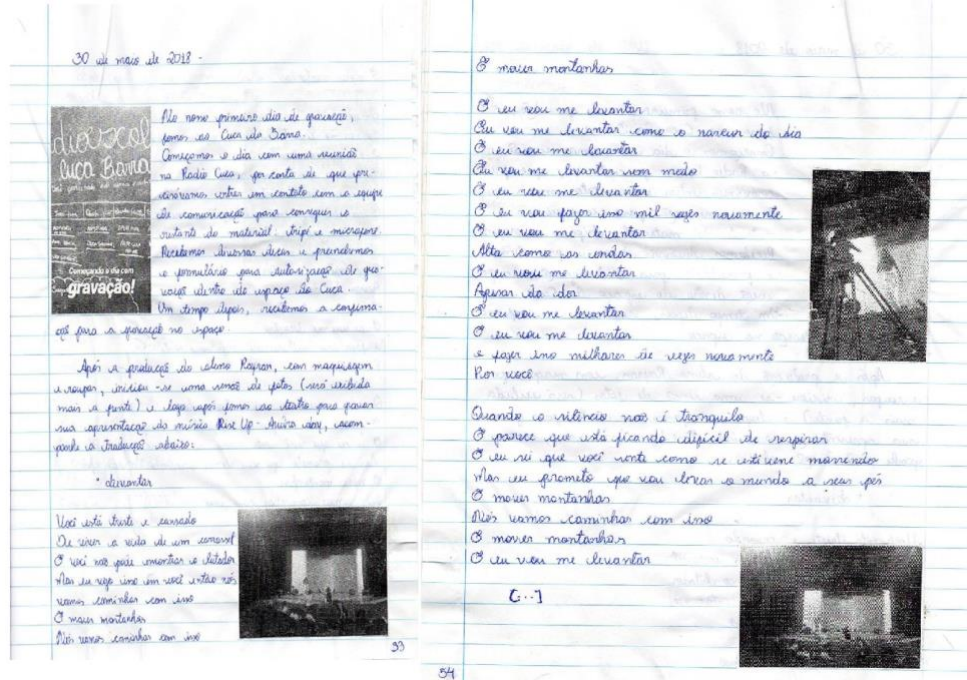 30 de maio de 2018 -
diáxol
Cuca Barra
Começando o dia com
gravação!
No nosso primeiro dia de gravação,
fomos ao Cuca da Barra.
Começamos o dia com uma reunião
na Rádio Cuca, por conta de que pre-
cisávamos entrar em contato com a equipe
de comunicação para conseguir o
restante do material: tripé e microfone.
Recebemos diversas dicas e preenchemos
o formulário para autorização de gra-
vação dentro do espaço do Cuca.
Um tempo depois, recebemos a confirma-
ção para a gravação no espaço.
Após a produção do aluno Rayran, com maquiagem
e roupas, iniciou-se uma sessão de fotos (será exibida
mais a frente) e logo após fomos ao teatro para gravar
sua apresentação da música Rise Up - Andra Day, acom-
panhe a tradução abaixo:
Levantar
Você está triste e cansado
De viver a vida de um carrossel
E você não pode encontrar o lutador
Mas eu vejo isso em você então nós
vamos caminhar com isso
E mover montanhas
Nós vamos caminhar com isso
33
E mover montanhas
E eu vou me levantar
Eu vou me levantar como o nascer do dia
E eu vou me levantar
Eu vou me levantar sem medo
E eu vou me levantar
E eu vou fazer isso mil vezes novamente
E eu vou me levantar
Alta como as ondas
E eu vou me levantar
Apesar da dor
E eu vou me levantar
E eu vou me levantar
e fazer isso milhares de vezes novamente
Por você
Quando o silêncio não é tranquilo
E parece que está ficando difícil de respirar
E eu sei que você sente como se estivesse morrendo
Mas eu prometo que vou levar o mundo a seus pés
E mover montanhas
Nós vamos caminhar com isso
E mover montanhas
E eu vou me levantar
[...]
34